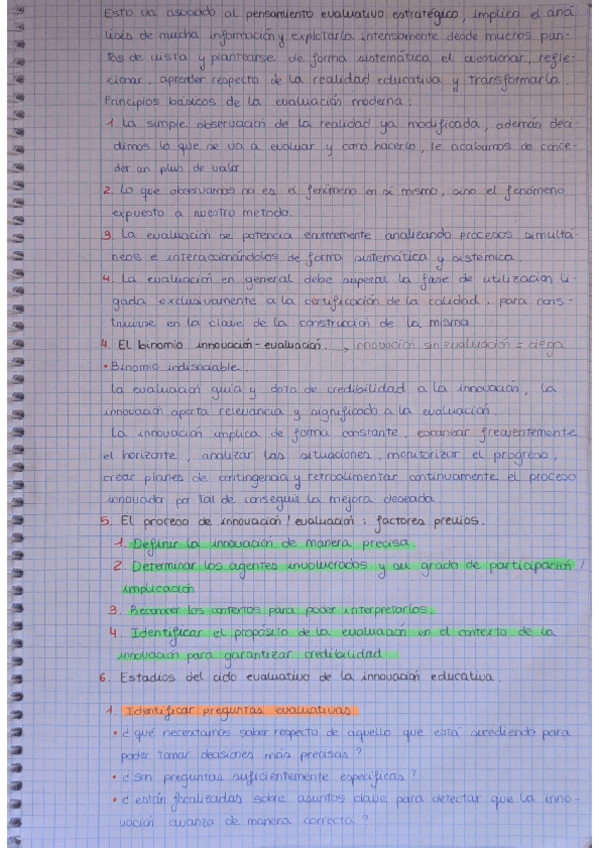 Esto va asociado al pensamiento evaluativo estratégico, implica el aná-
lisis de mucha información y explotarla intensamente desde muchos pun-
tos de vista y plantearse de forma sistemática el cuestionar, refle-
xionar, aprender respecto de la realidad educativa y transformarla.
Principios básicos de la evaluación moderna:
1. La simple observación de la realidad ya modificada, además deci-
dimos lo que se va a evaluar y como hacerlo, le acabamos de conce-
der un plus de valor
2. Lo que observamos no es el fenómeno en sí mismo, sino el fenómeno
expuesto a nuestro metodo.
3. La evaluación se potencia enormemente analizando procesos simultá-
neos e interaccionándolos de forma sistemática y sistémica.
4. La evaluación en general debe superar la fase de utilización li-
gada exclusivamente a la certificación de la calidad, para cons-
truirse en la clave de la construcción de la misma
4. El binomio innovación-evaluación. → Innovación sin evaluación = ciega
• Binomio indisociable.
La evaluación guía y dota de credibilidad a la innovación, la
innovación aporta relevancia y significado a la evaluación.
La innovación implica de forma constante, escanear frecuentemente
el horizonte, analizar las situaciones, monitorizar el progreso,
crear planes de contingencia y retroalimentar continuamente el proceso
innovador por tal de conseguir la mejora deseada.
5. El proceso de innovación / evaluación: factores previos.
1. Definir la innovación de manera precisa.
2. Determinar los agentes involucrados y su grado de participación /
implicación
3. Reconocer los contextos para poder interpretarlos.
4. Identificar el propósito de la evaluación en el contexto de la
innovación para garantizar credibilidad.
6. Estadios del ciclo evaluativo de la innovación educativa.
1. Identificar preguntas evaluativas.
• ¿ qué necesitamos saber respecto de aquello que está sucediendo para
poder tomar decisiones más precisas ?
• ¿ son preguntas suficientemente específicas ?
• ¿ están focalizadas sobre asuntos clave para detectar que la inno-
vación avanza de manera correcta ?